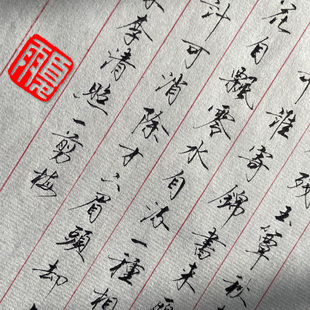 残玉簟秋
誰寄錦書来
花自飄零水自流一種相
計可消除才下眉頭却
李清照一剪梅